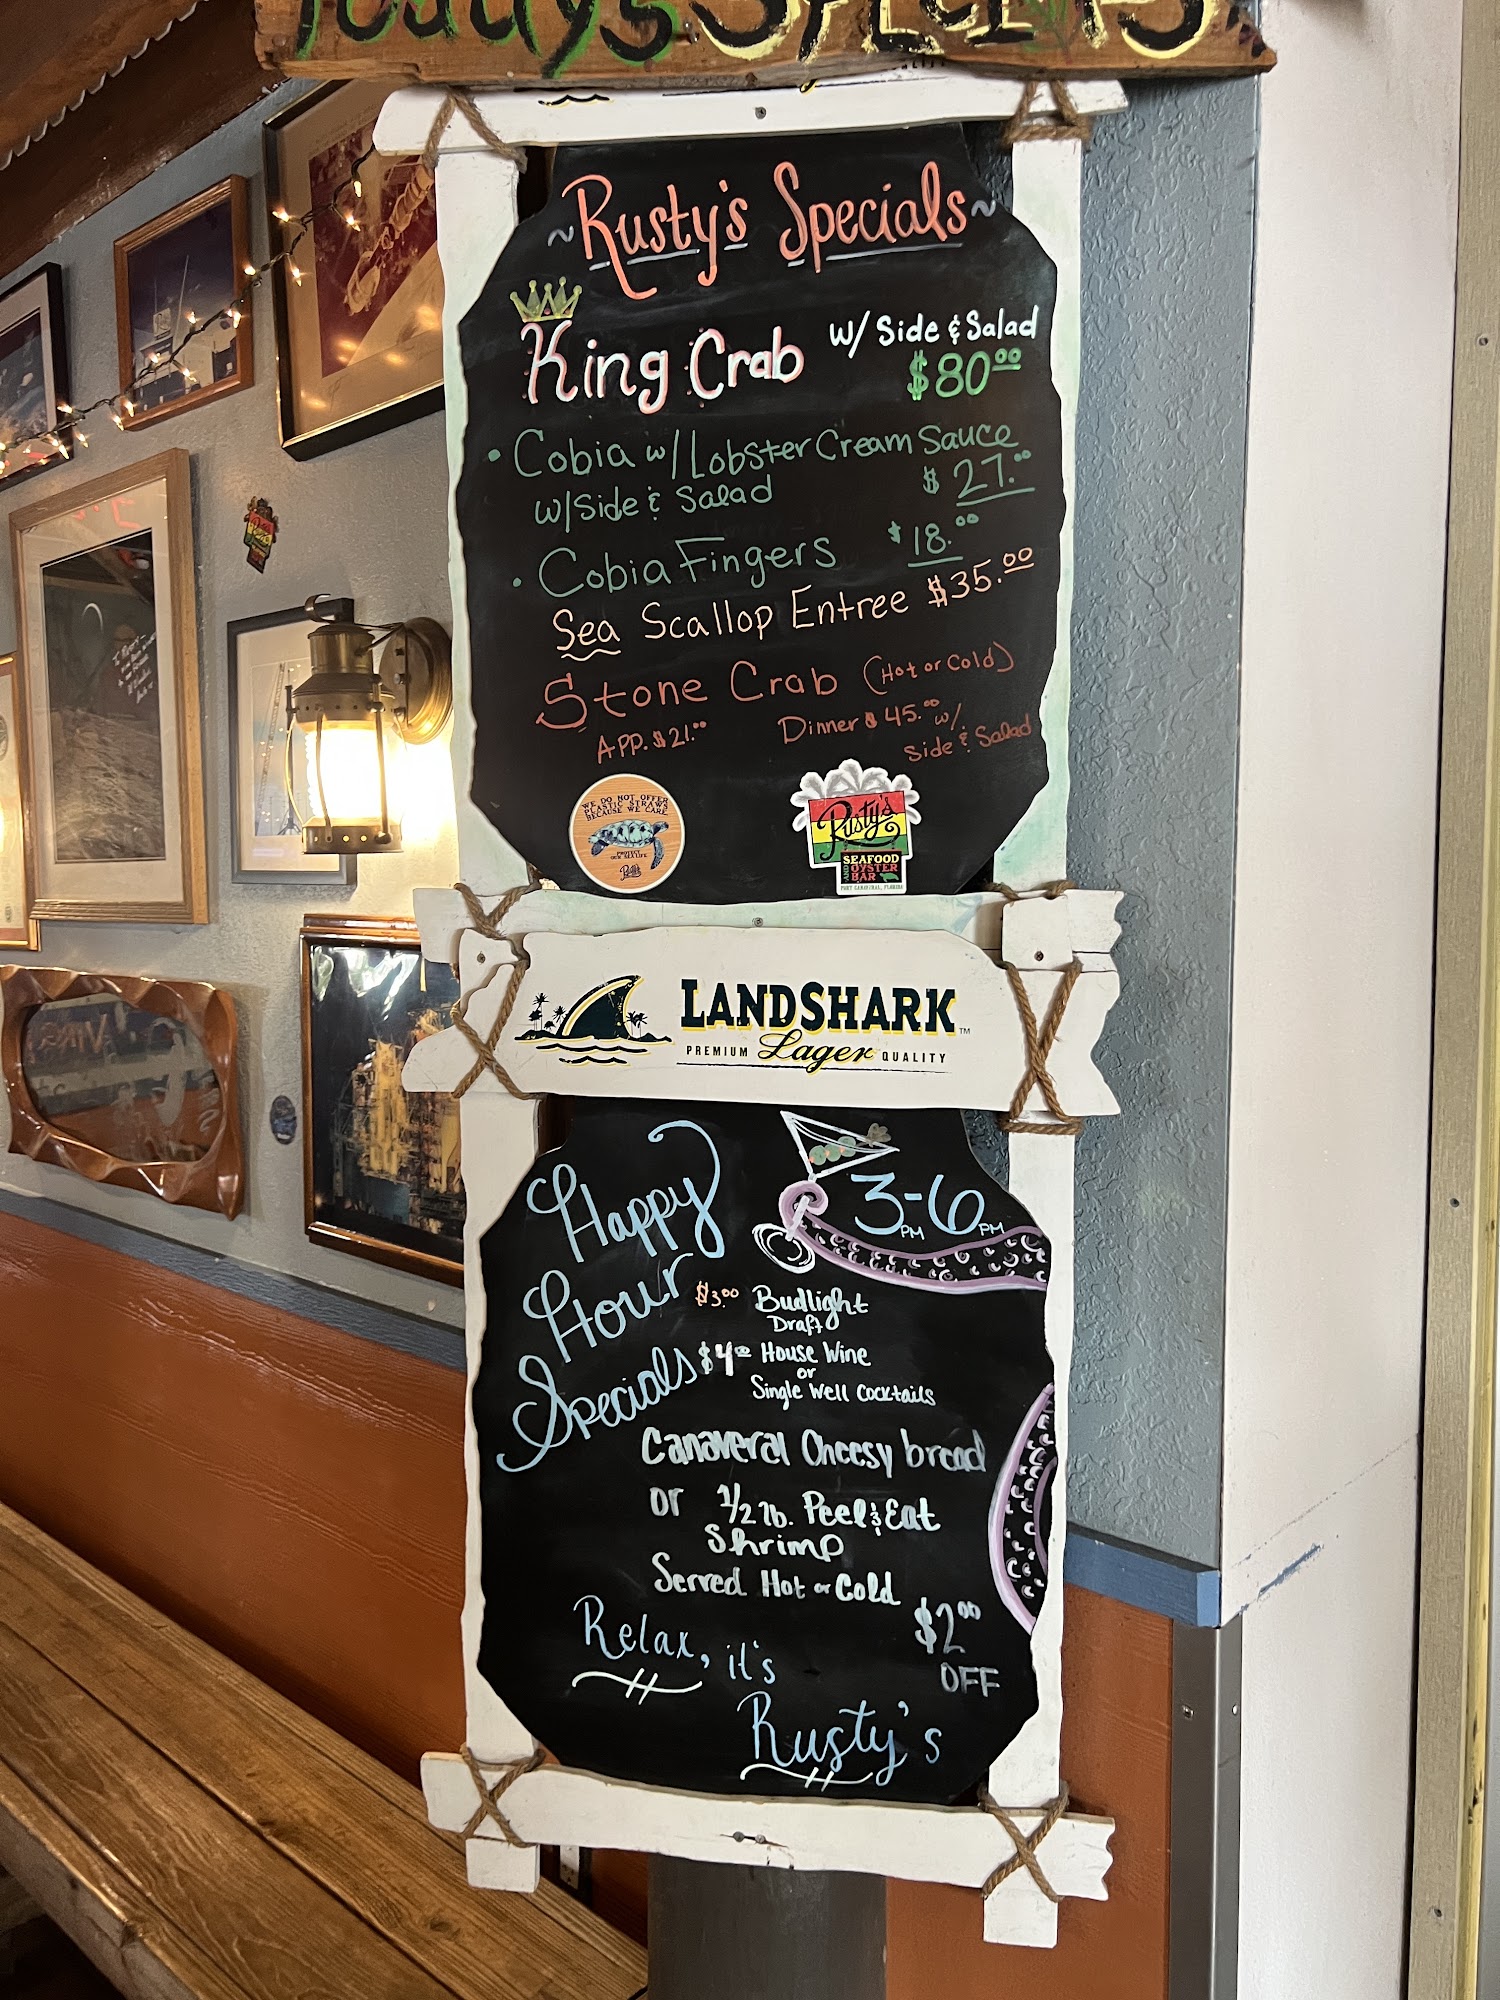 Today's Specials
~Rusty's Specials~
King Crab w/ Side & Salad
$80.00
• Cobia w/ Lobster Cream Sauce
w/ Side & Salad $27.00
• Cobia Fingers $18.00
Sea Scallop Entree $35.00
Stone Crab (Hot or Cold)
APP. $21.00 Dinner $45.00 w/
Side & Salad
WE DO NOT OFFER
PLASTIC STRAWS
BECAUSE WE CARE.
PROTECT
OUR SEA LIFE
Rusty's
Rusty's
SEAFOOD
AND OYSTER
BAR
PORT CANAVERAL, FLORIDA
LANDSHARK™
PREMIUM Lager QUALITY
Happy
Hour
Specials
3PM-6PM
$3.00 Budlight
Draft
$4.00 House Wine
or
Single Well Cocktails
Canaveral Cheesy bread
or 1/2 lb. Peel & Eat
Shrimp
Served Hot or Cold
$2.00
OFF
Relax, it's
Rusty's